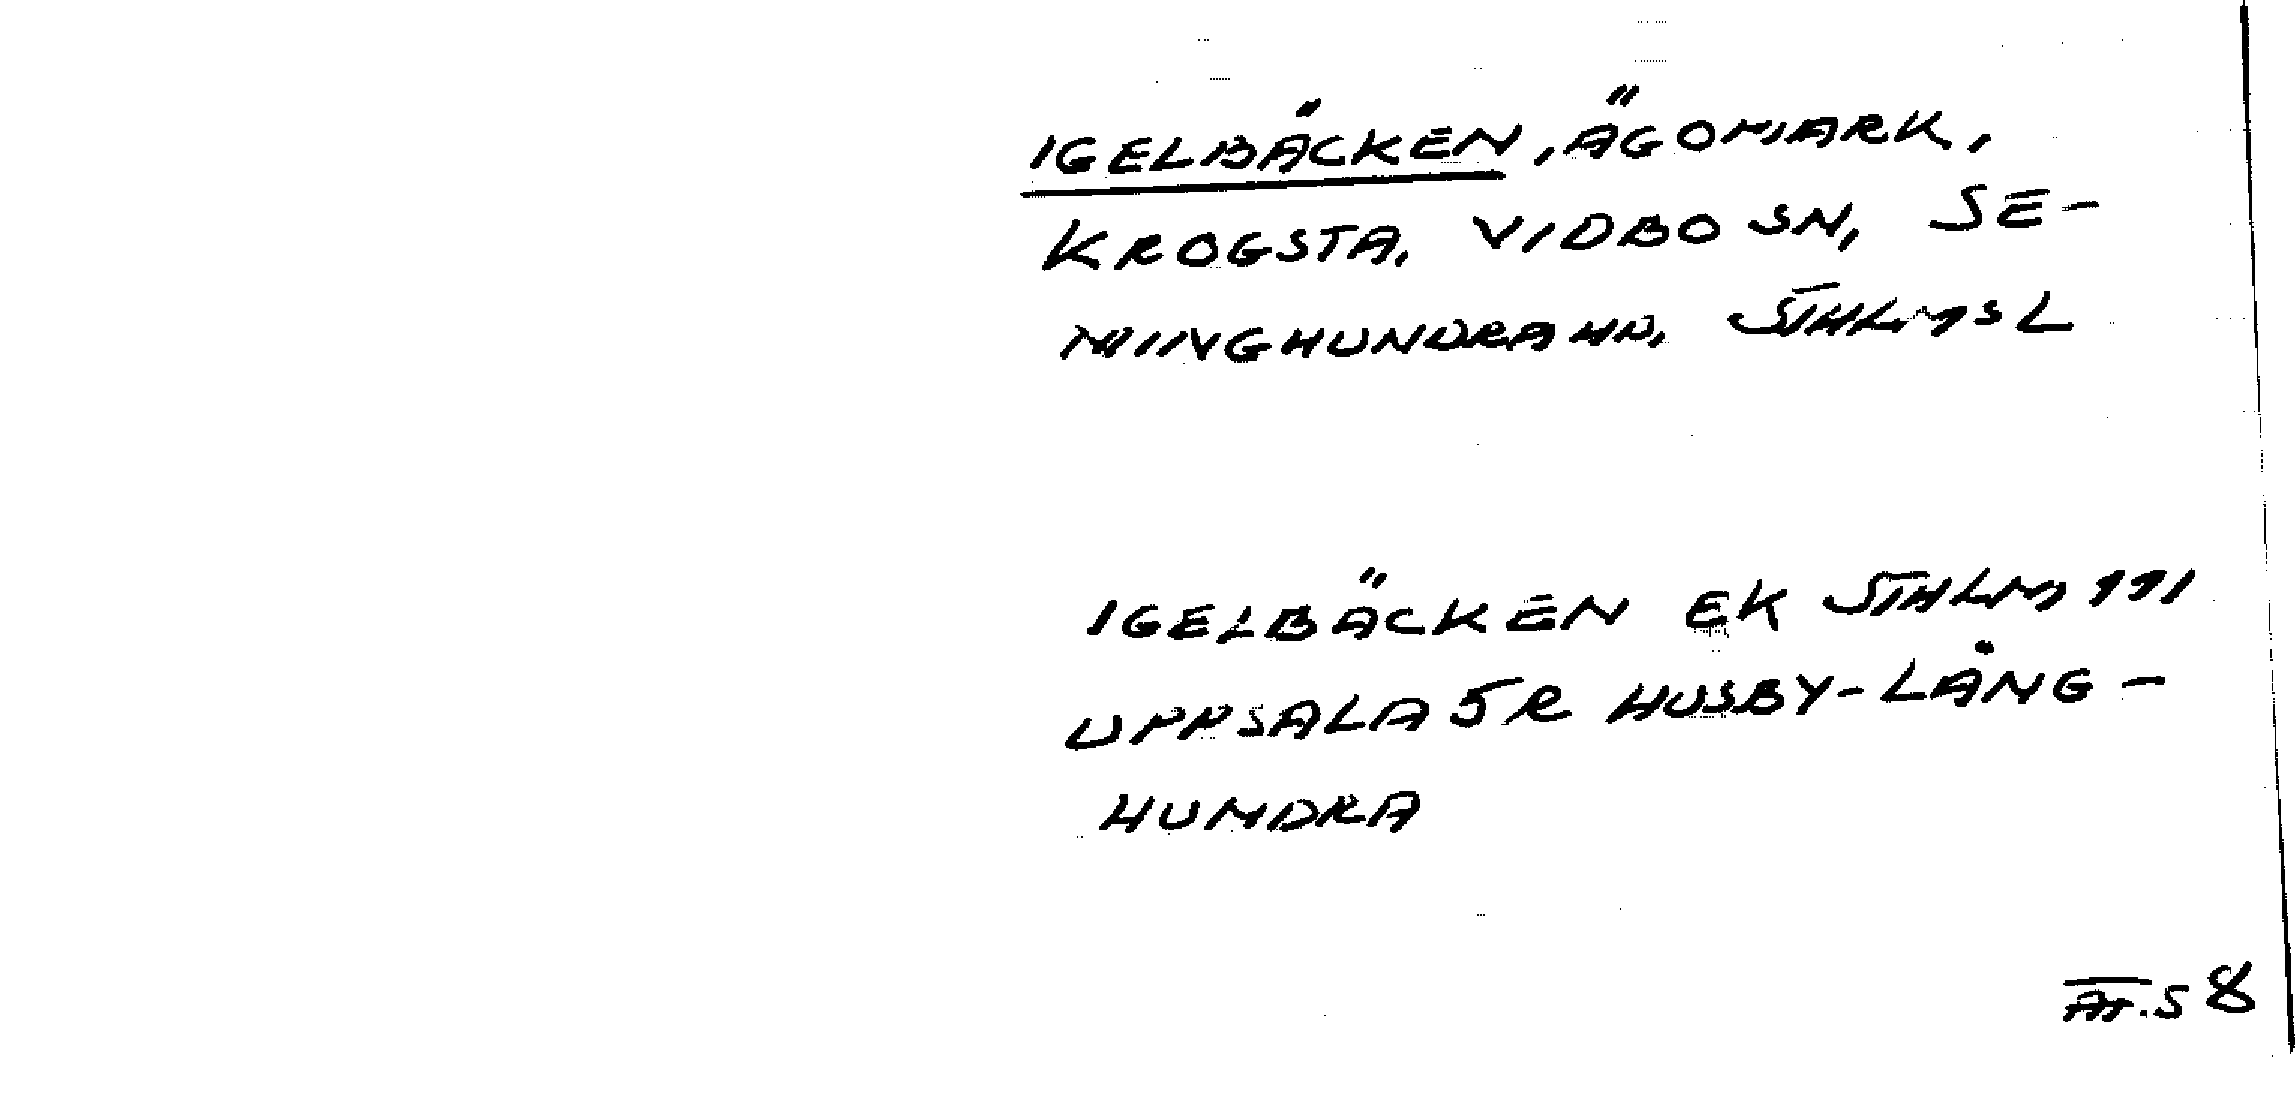 IGELBÄCKEN, ÄGOMARK,
KROGSTA, VIDBO SN, SE-
MINGHUNDRA HD, STHLMS L
IGELBÄCKEN EK STHLM 111
UPPSALA 5R HUSBY-LÅNG-
HUNDRA